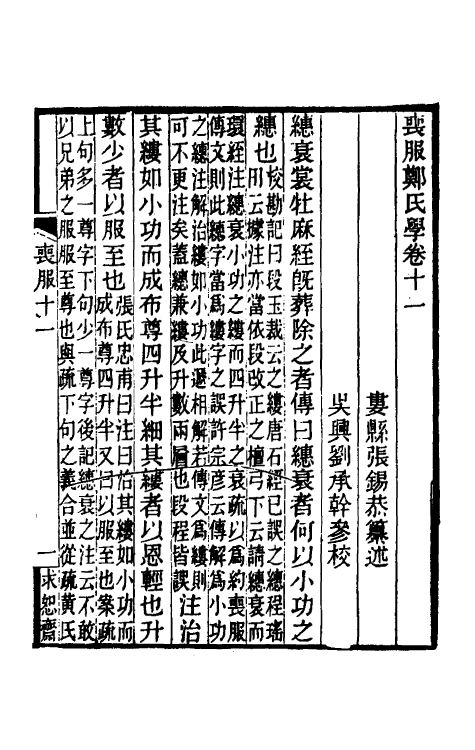 喪服鄭氏學卷十一
婁縣張錫恭纂述
吳興劉承幹參校
繐衰裳牡麻絰旣葬除之者傳曰繐衰者何以小功之
繐也校勘記曰段玉裁云之縷唐石經已誤之繐程瑤
田云據注亦當依段改正之檀弓下云請繐衰而
環絰注繐衰小功之縷而四升半之衰疏以爲約喪服
傳文則此繐字當爲縷字之誤許宗彥云傳解爲小功
之繐注解治縷如小功此遞相解若傳文爲縷則
可不更注矣蓋繐兼縷及升數兩層也段程皆誤注治
其縷如小功而成布尊四升半細其縷者以恩輕也升
數少者以服至也張氏忠甫曰注曰治其縷如小功而
成布尊四升半又曰以服至也案疏
上句多一尊字下句少一尊字後記繐衰之注云不敢
以兄弟之服服至尊也與疏下句之義合並從疏黃氏
喪服十一
一
求恕齋